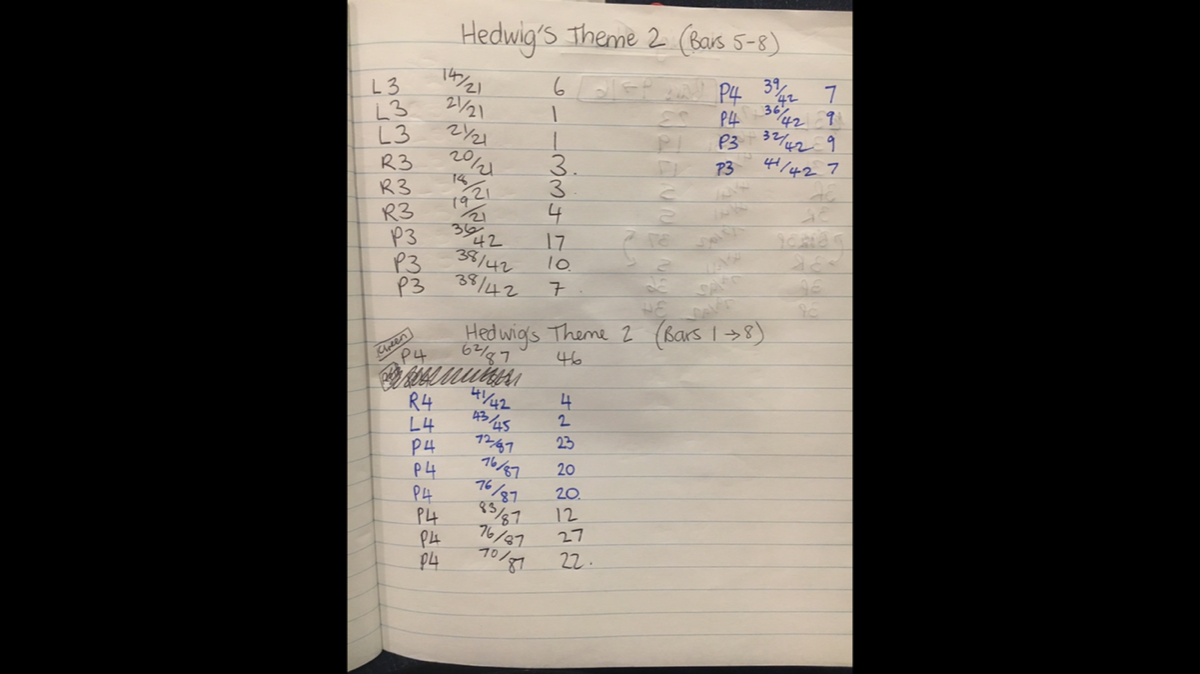 Hedwig's Theme 2 (Bars 5-8)
L3 14/21 6
L3 21/21 1
L3 21/21 1
R3 20/21 3.
R3 18/21 3
R3 19/21 4
P3 36/42 17
P3 38/42 10.
P3 38/42 7.
P4 39/42 7
P4 36/42 9
P3 32/42 9
P3 41/42 7
Hedwig's Theme 2 (Bars 1→8)
P4 62/87 46
R4 41/42 4
L4 43/45 2
P4 72/87 23
P4 76/87 20
P4 76/87 20.
P4 83/87 12
P4 76/87 27
P4 70/87 22.